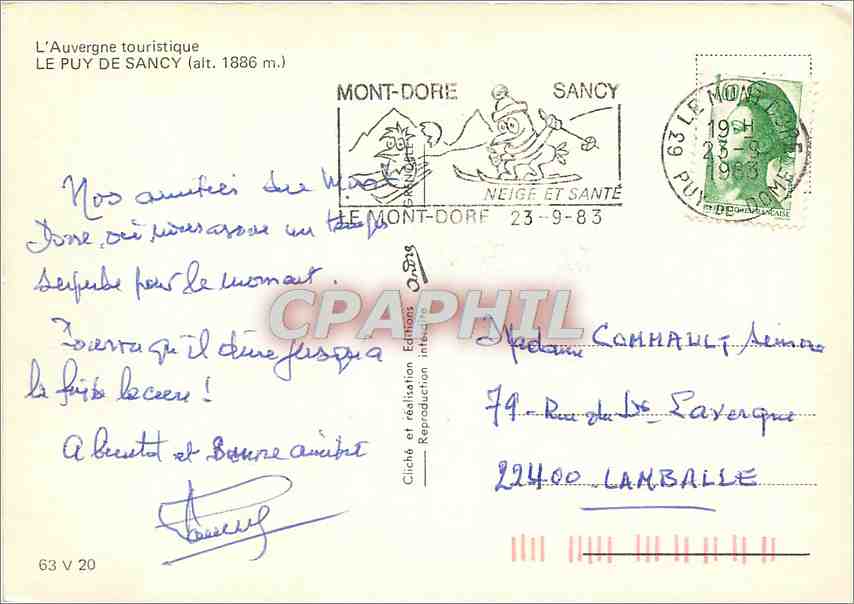 L'Auvergne touristique
LE PUY DE SANCY (alt. 1886 m.)
MONT-DORE SANCY
NEIGE ET SANTÉ
LE MONT-DORE 23-9-83
63 LE MONT DORE
19 H
23-9
1983
PUY-DE-DOME
Nos amitiés du Mont
Dore, où nous avons un temps
superbe pour le moment.
Pourvu qu'il dure jusqu'à
la fin de la cure !
A bientôt et Bonne amitié
Cliché et réalisation Editions André GRENOBLE
Reproduction interdite
CPAPHIL
Madame COMMAULT Simone
79 - Rue du Dr Lavergne
22400 LAMBALLE
63 V 20